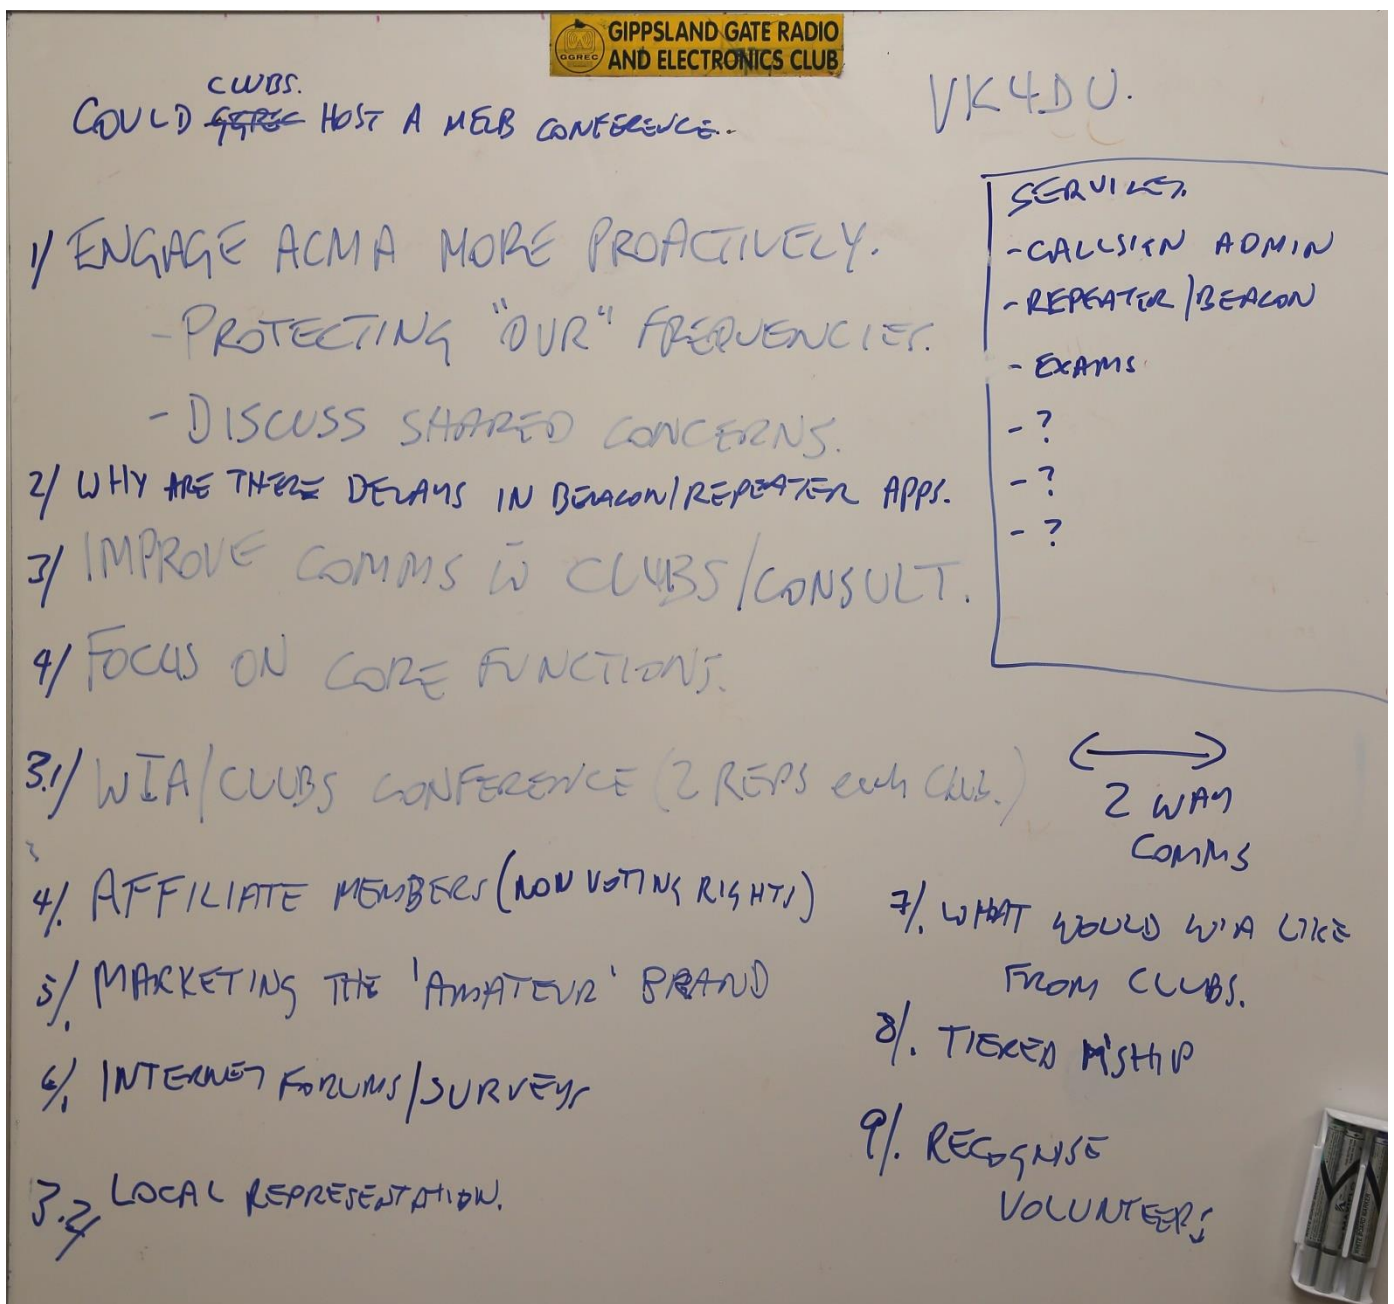 GIPPSLAND GATE RADIO
AND ELECTRONICS CLUB
GGREC
CLUBS.
COULD GGREC HOST A MELB CONFERENCE.
VK4DU.
1/ ENGAGE ACMA MORE PROACTIVELY.
- PROTECTING "OUR" FREQUENCIES.
- DISCUSS SHARED CONCERNS.
2/ WHY ARE THERE DELAYS IN BEACON/REPEATER APPS.
3/ IMPROVE COMMS W CLUBS/CONSULT.
4/ FOCUS ON CORE FUNCTIONS.
3.1/ WIA/CLUBS CONFERENCE (2 REPS each CLUB.)
4/. AFFILIATE MEMBERS (NON VOTING RIGHTS)
5/. MARKETING THE 'AMATEUR' BRAND
6/. INTERNET FORUMS/SURVEYS
3.2/ LOCAL REPRESENTATION.
SERVICES.
- CALLSIGN ADMIN
- REPEATER/BEACON
- EXAMS
- ?
- ?
- ?
2 WAY
COMMS
7/. WHAT WOULD WIA LIKE
FROM CLUBS.
8/. TIERED M'SHIP
9/. RECOGNISE
VOLUNTEERS